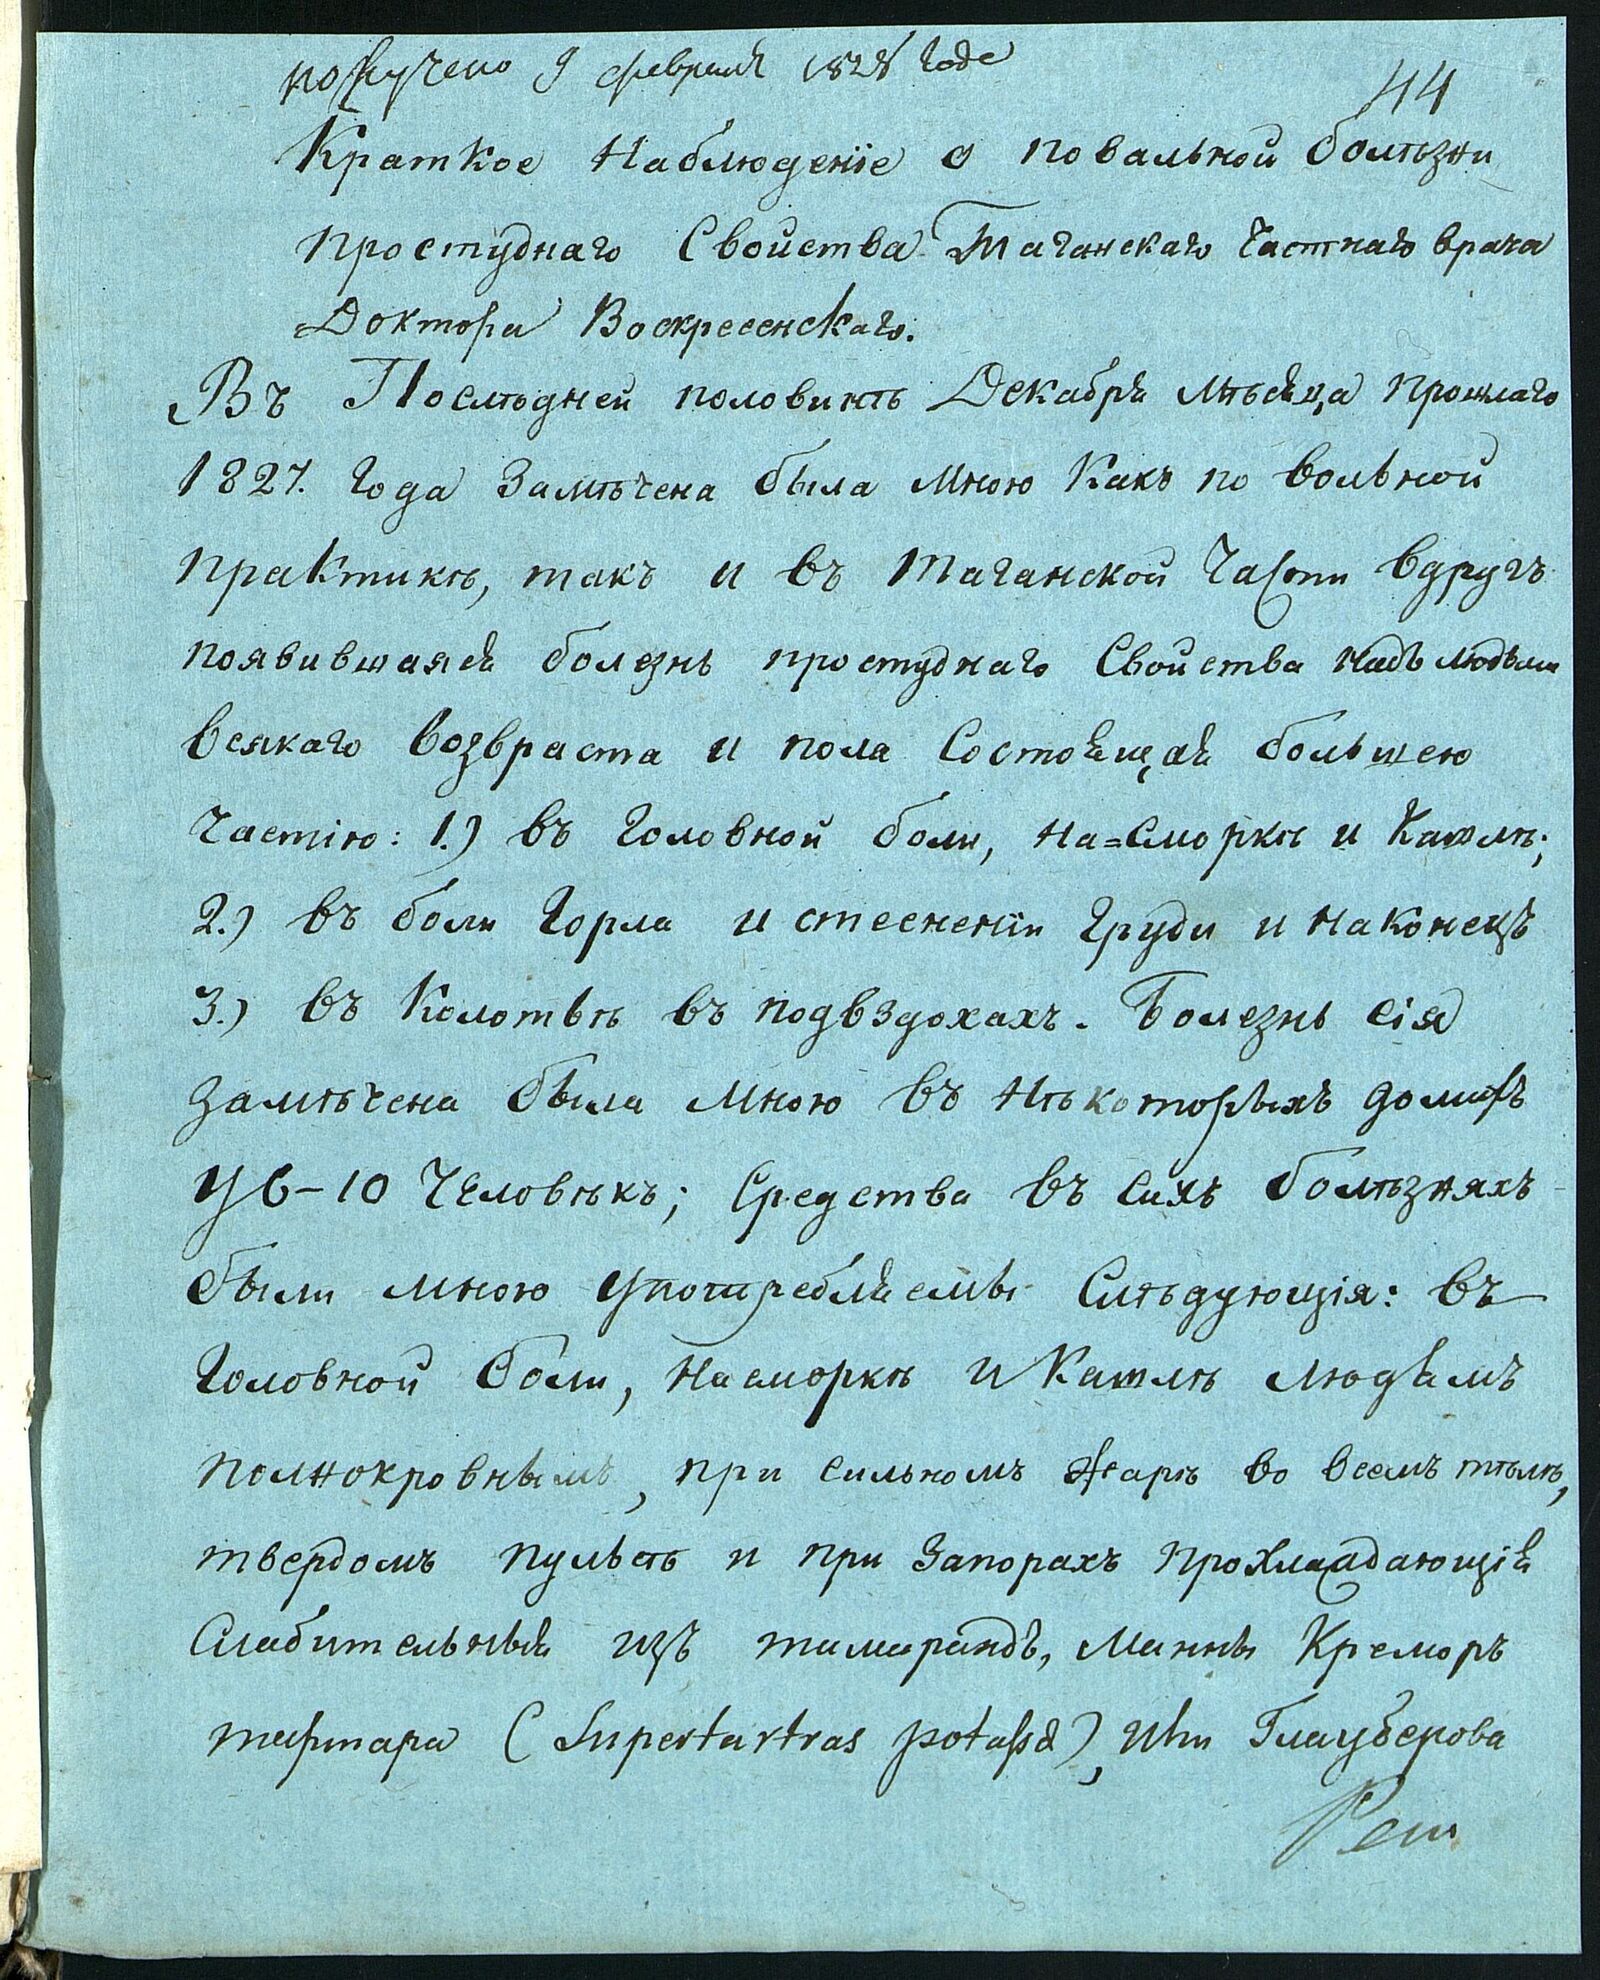 получено 9 февраля 1828 Годе
44
Краткое Наблюденіе о повальной болѣзни
простуднаго Свойства Таганскаго Частнаго врача
Доктора Воскресенскаго.
Въ Послѣдней половинѣ Декабря мѣсяца прошлаго
1827. Года Замѣчена была мною Какъ по вольной
практикѣ, такъ и въ Таганской Части вдругъ
появившаяся болезнь простуднаго Свойства надъ людьми
всякаго возвраста и пола Состоящая большею
Частію: 1.) въ Головной боли, На=Сморкѣ и Кашлѣ;
2.) въ боли Горла и стеененіи Груди и наконецъ
3.) въ Колотьѣ въ подвздохахъ. Болезнь сія
замѣчена была мною въ нѣкоторыхъ домахъ
у 6–10 Человѣкъ; Средства въ сихъ болѣзняхъ
были мною употребляемы Слѣдующія: въ
Головной боли, Насморкѣ и Кашлѣ людямъ
полнокровнымъ, при сильномъ жарѣ во всемъ тѣлѣ,
твердомъ пульсѣ и при Запорахъ прохлаадающія
Слабительныя изъ тамариндъ, Манны Креморъ
тартара (Supertartras potassæ), или Глауберова